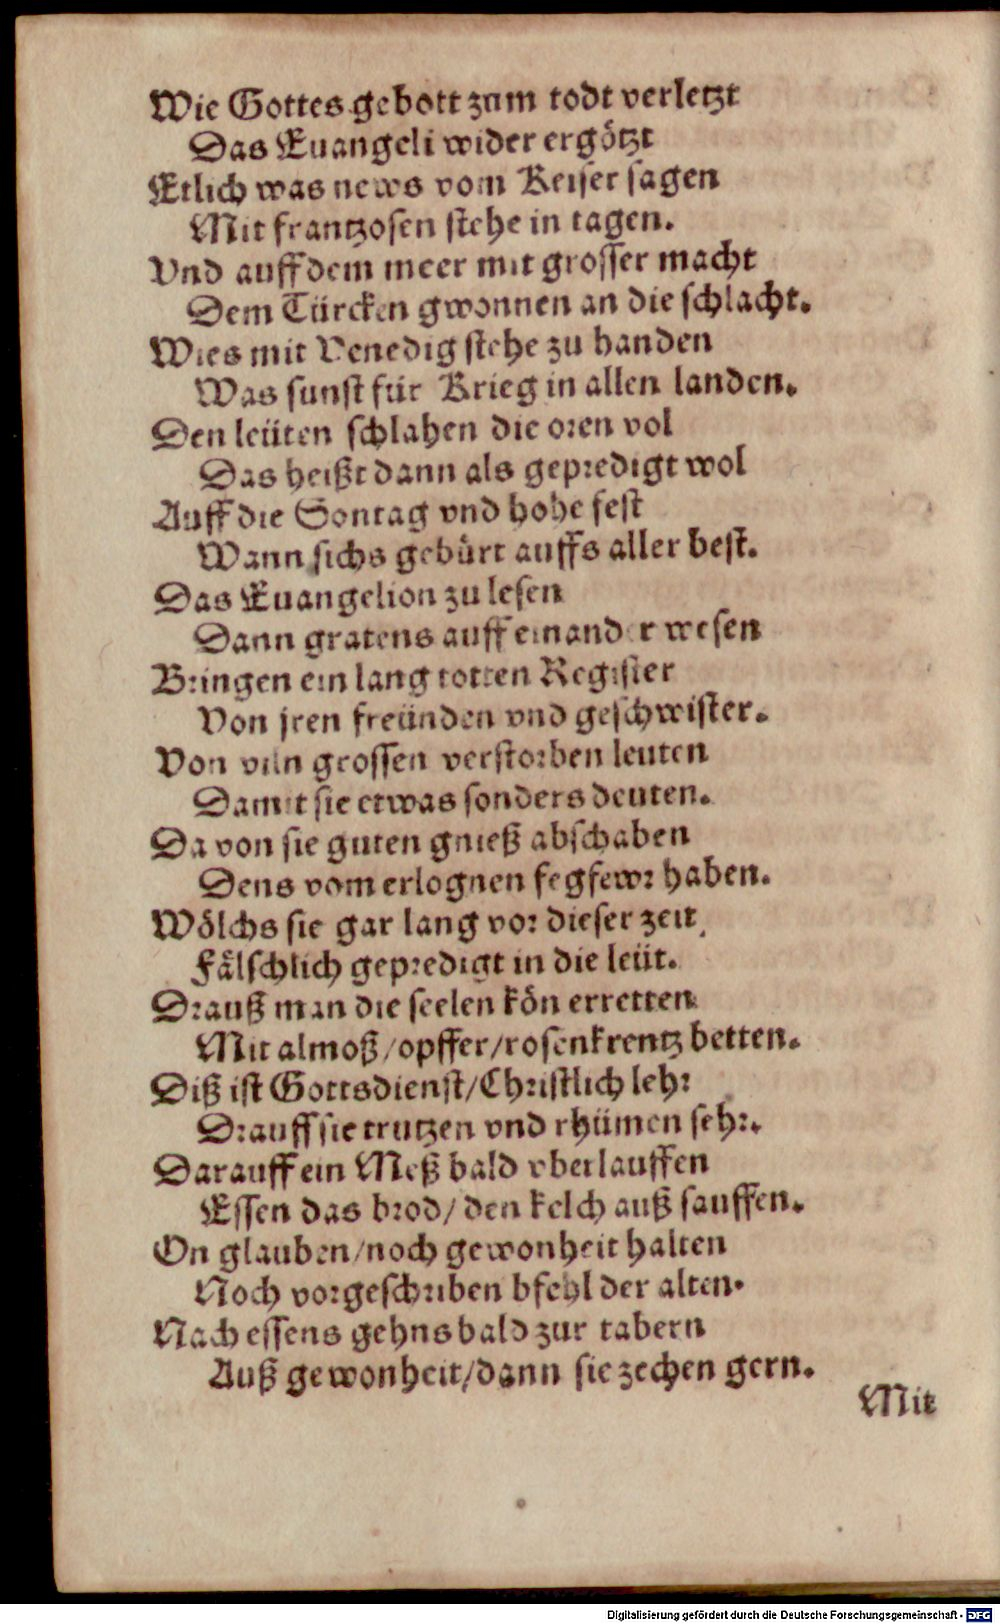 Wie Gottes gebott zum todt verletzt
Das Euangeli wider ergötzt
Etlich was news vom Keiser sagen
Mit frantzosen stehe in tagen.
Vnd auff dem meer mit grosser macht
Dem Türcken gwonnen an die schlacht.
Wies mit Venedig stehe zu handen
Was sunst für Krieg in allen landen.
Den leüten schlahen die oren vol
Das heißt dann als gepredigt wol
Auff die Sontag vnd hohe fest
Wann sichs gebürt auffs aller best.
Das Euangelion zu lesen
Dann gratens auff einander wesen
Bringen ein lang totten Register
Von jren freünden vnd geschwister.
Von viln grossen verstorben leuten
Damit sie etwas sonders deuten.
Da von sie guten gnieß abschaben
Dens vom erlognen fegfewr haben.
Wölchs sie gar lang vor dieser zeit
Fälschlich gepredigt in die leüt.
Drauß man die seelen kön erretten
Mit almoß/opffer/rosenkrentz betten.
Diß ist Gottsdienst/Christlich lehr
Drauff sie trutzen vnd rhümen sehr.
Darauff ein Meß bald vberlauffen
Essen das brod/den kelch auß sauffen.
On glauben/noch gewonheit halten
Noch vorgeschriben bfehl der alten.
Nach essens gehns bald zur tabern
Auß gewonheit/dann sie zechen gern.
Mit
Digitalisierung gefördert durch die Deutsche Forschungsgemeinschaft - DFG